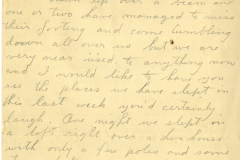 down up over a beam an
one or two have managed to miss
their footing and come tumbling
down all over us but we are
very near used to anything now
and I would like to have you
see the places we have slept in
this last week you'd certainly
laugh. One night we slept on
a loft right over a henhouse
with only a few poles and some